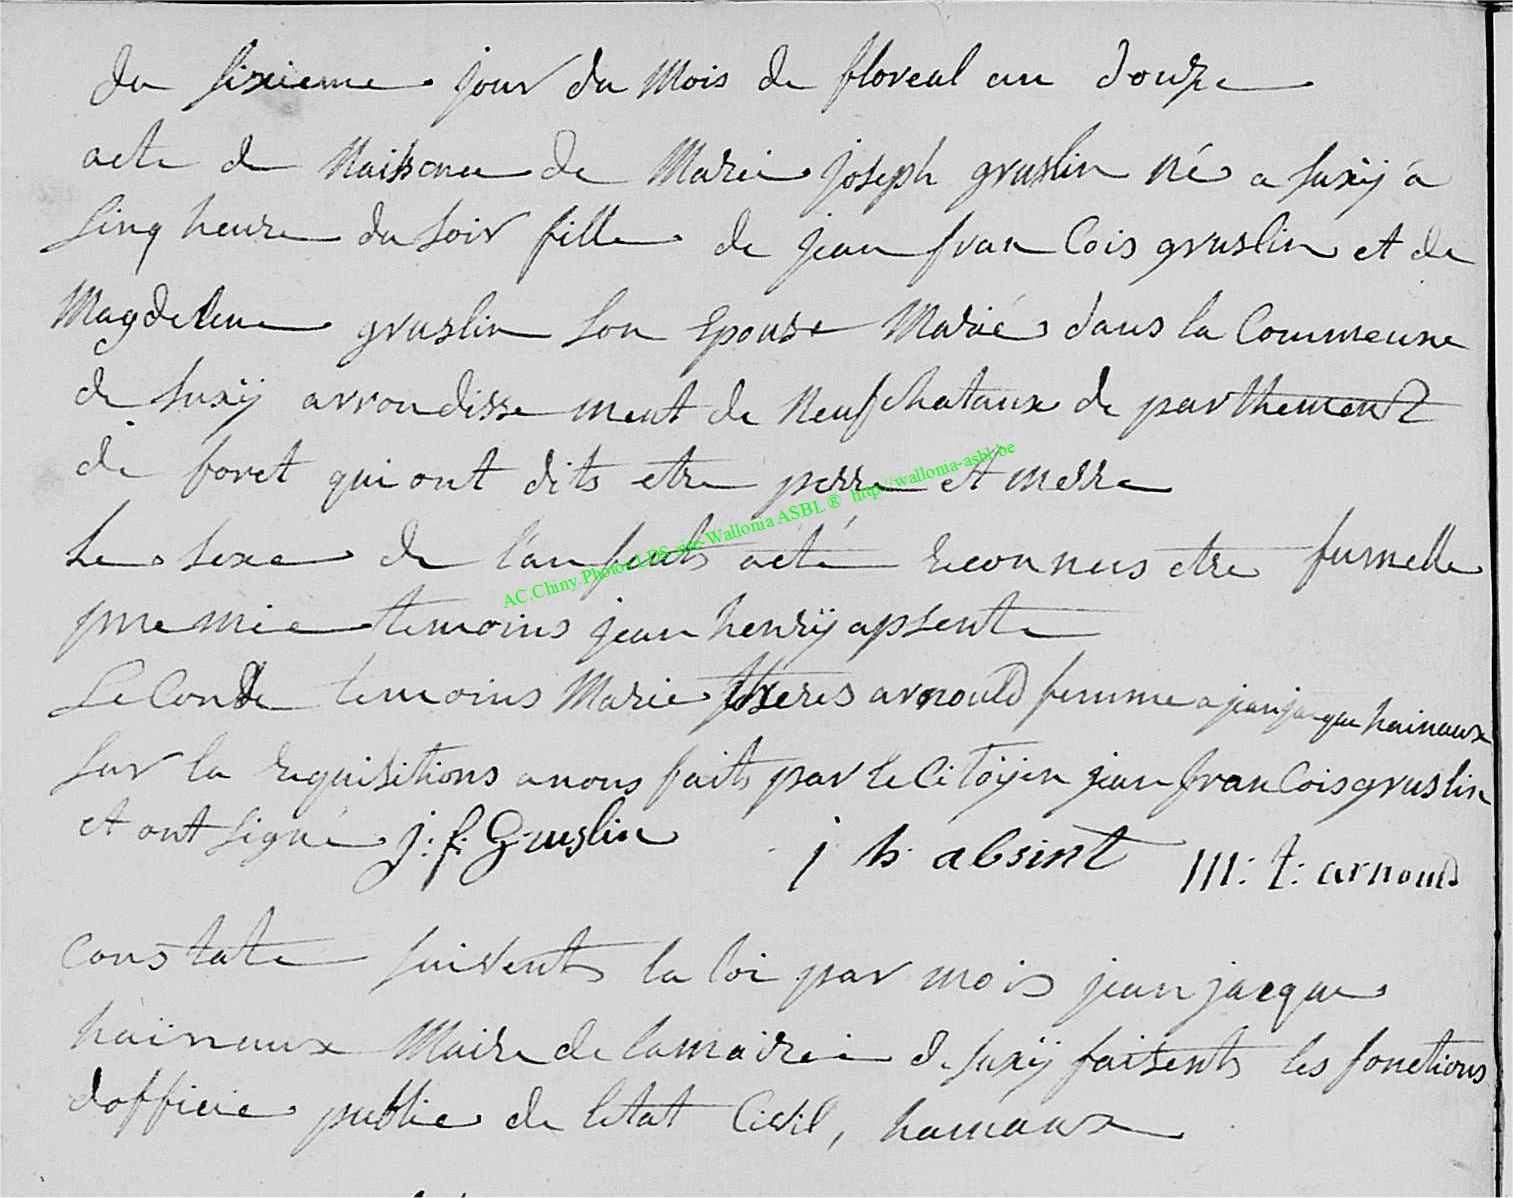 du sixieme jour du mois de floreal an douze
acte de Naissance de Marie joseph gruslin né a suxÿ á
sinq heure du soir fille de jean francois gruslin et de
Magdelene gruslin son Epouse Marié dans la Commeune
de suxÿ arrondissement de Neufchataux de parthement
de foret qui ont dits etre perre et merre
Le sexe de l'anfants acté reconnus etre fumelle
premie temoins jean henrÿ apsente
seConde temoins Marie theres arnould femme a jean jacque hainaux
sur la requisitions a nous faits par le Citoÿen jean francois gruslin
et ont signé j. f. Gruslin j h absint m: t: arnould
constate suivents la loi par mois jean jacque
hainaux Maire de la mairie de suxÿ faisents les fonctions
dofficie public de letat Civil, hainaux
AC.Chiny Photos LDS sur Wallonia ASBL ® http://wallonia-asbl.be